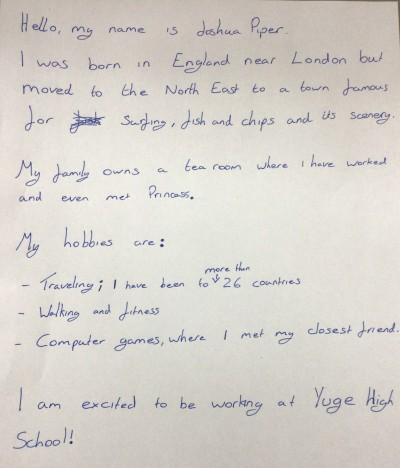 Hello, my name is Joshua Piper.
I was born in England near London but
moved to the North East to a town famous
for surfing, fish and chips and its scenery.
My family owns a tea room where I have worked
and even met Princess.
My hobbies are:
more than
- Traveling; I have been to 26 countries
- Walking and fitness
- Computer games, where I met my closest friend.
I am excited to be working at Yuge High
School!